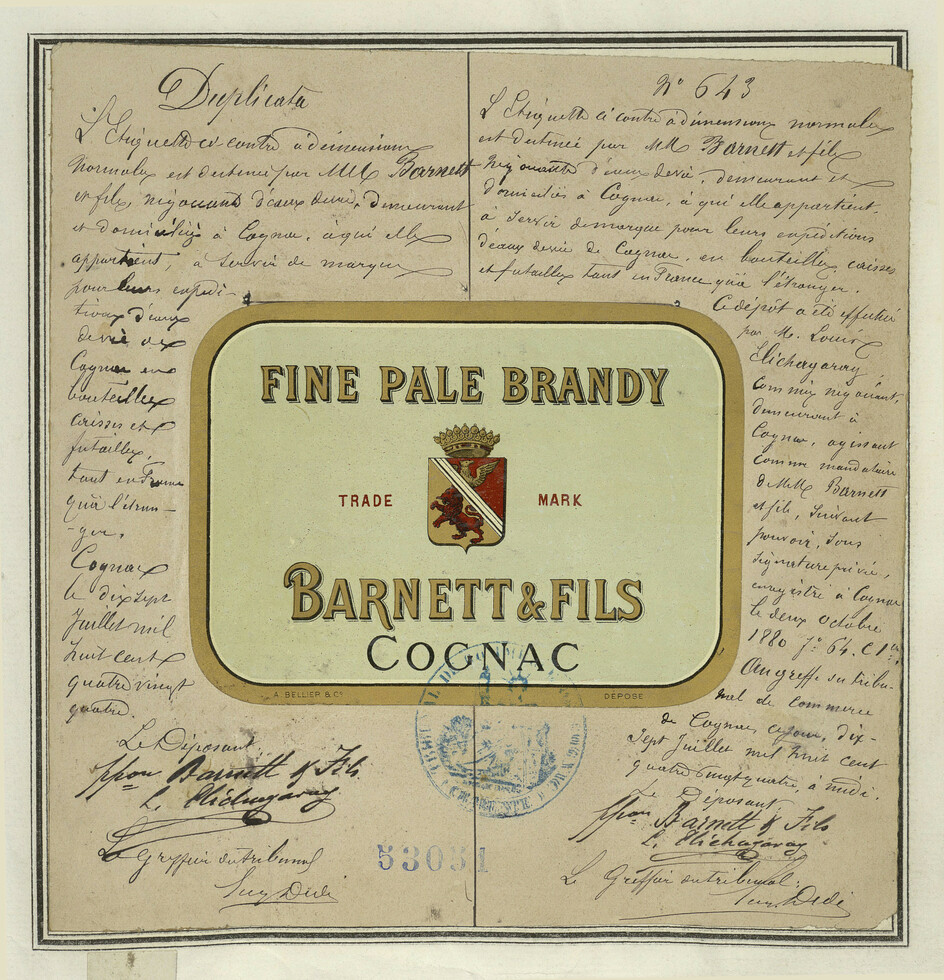 Duplicata
L'Etiquette ci contre à dimensions
normales est destinée par MM Barnett
et fils, négociants d'eaux de vie, demeurant
et domiciliés à Cognac, à qui elle
appartient, à servir de marque
pour leurs expédi-
tions d'eaux
de vie de
Cognac en
bouteilles
caisses et
futailles,
tant en France
qu'à l'étran-
-ger.
Cognac
le dix sept
Juillet mil
huit cent
quatre vingt
quatre.
Le Déposant
ppon Barnett & Fils
L. Elichagaray
Le Greffier du tribunal
N° 643
L'Etiquette ci contre à dimensions normales
est destinée par MM Barnett et fils
négociants d'eaux de vie, demeurant et
domiciliés à Cognac, à qui elle appartient,
à servir de marque pour leurs expéditions
d'eaux de vie de Cognac, en bouteilles, caisses
et futailles tant en France qu'à l'étranger.
Ce dépôt a été effectué
par M. Louis
Elichagaray,
Commis négociant,
demeurant à
Cognac, agissant
comme mandataire
de MM Barnett
et fils, suivant
pouvoir, sous
signature privée,
enregistré à Cognac
le deux Octobre
1880 f° 64. C 1re
Au greffe du tribu-
nal de commerce
de Cognac, ce jour, dix-
sept Juillet mil huit cent
quatre vingt quatre, à midi.
Le Déposant
ppon Barnett & Fils
L. Elichagaray
Le Greffier du tribunal
FINE PALE BRANDY
TRADE MARK
BARNETT & FILS
COGNAC
A. BELLIER & Co
DÉPOSÉ
53051